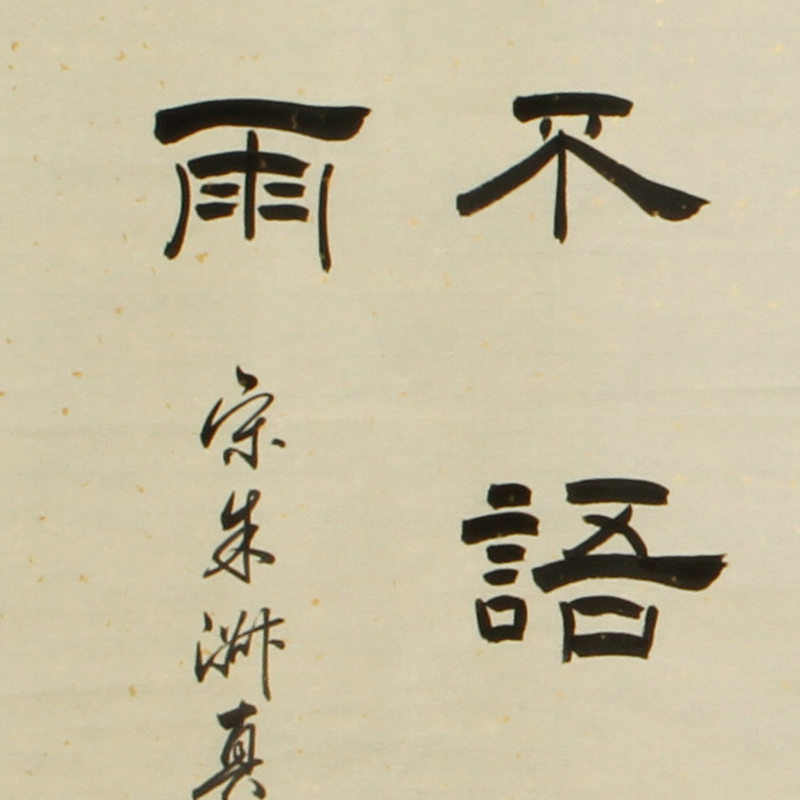 不語
雨
宋朱淑真